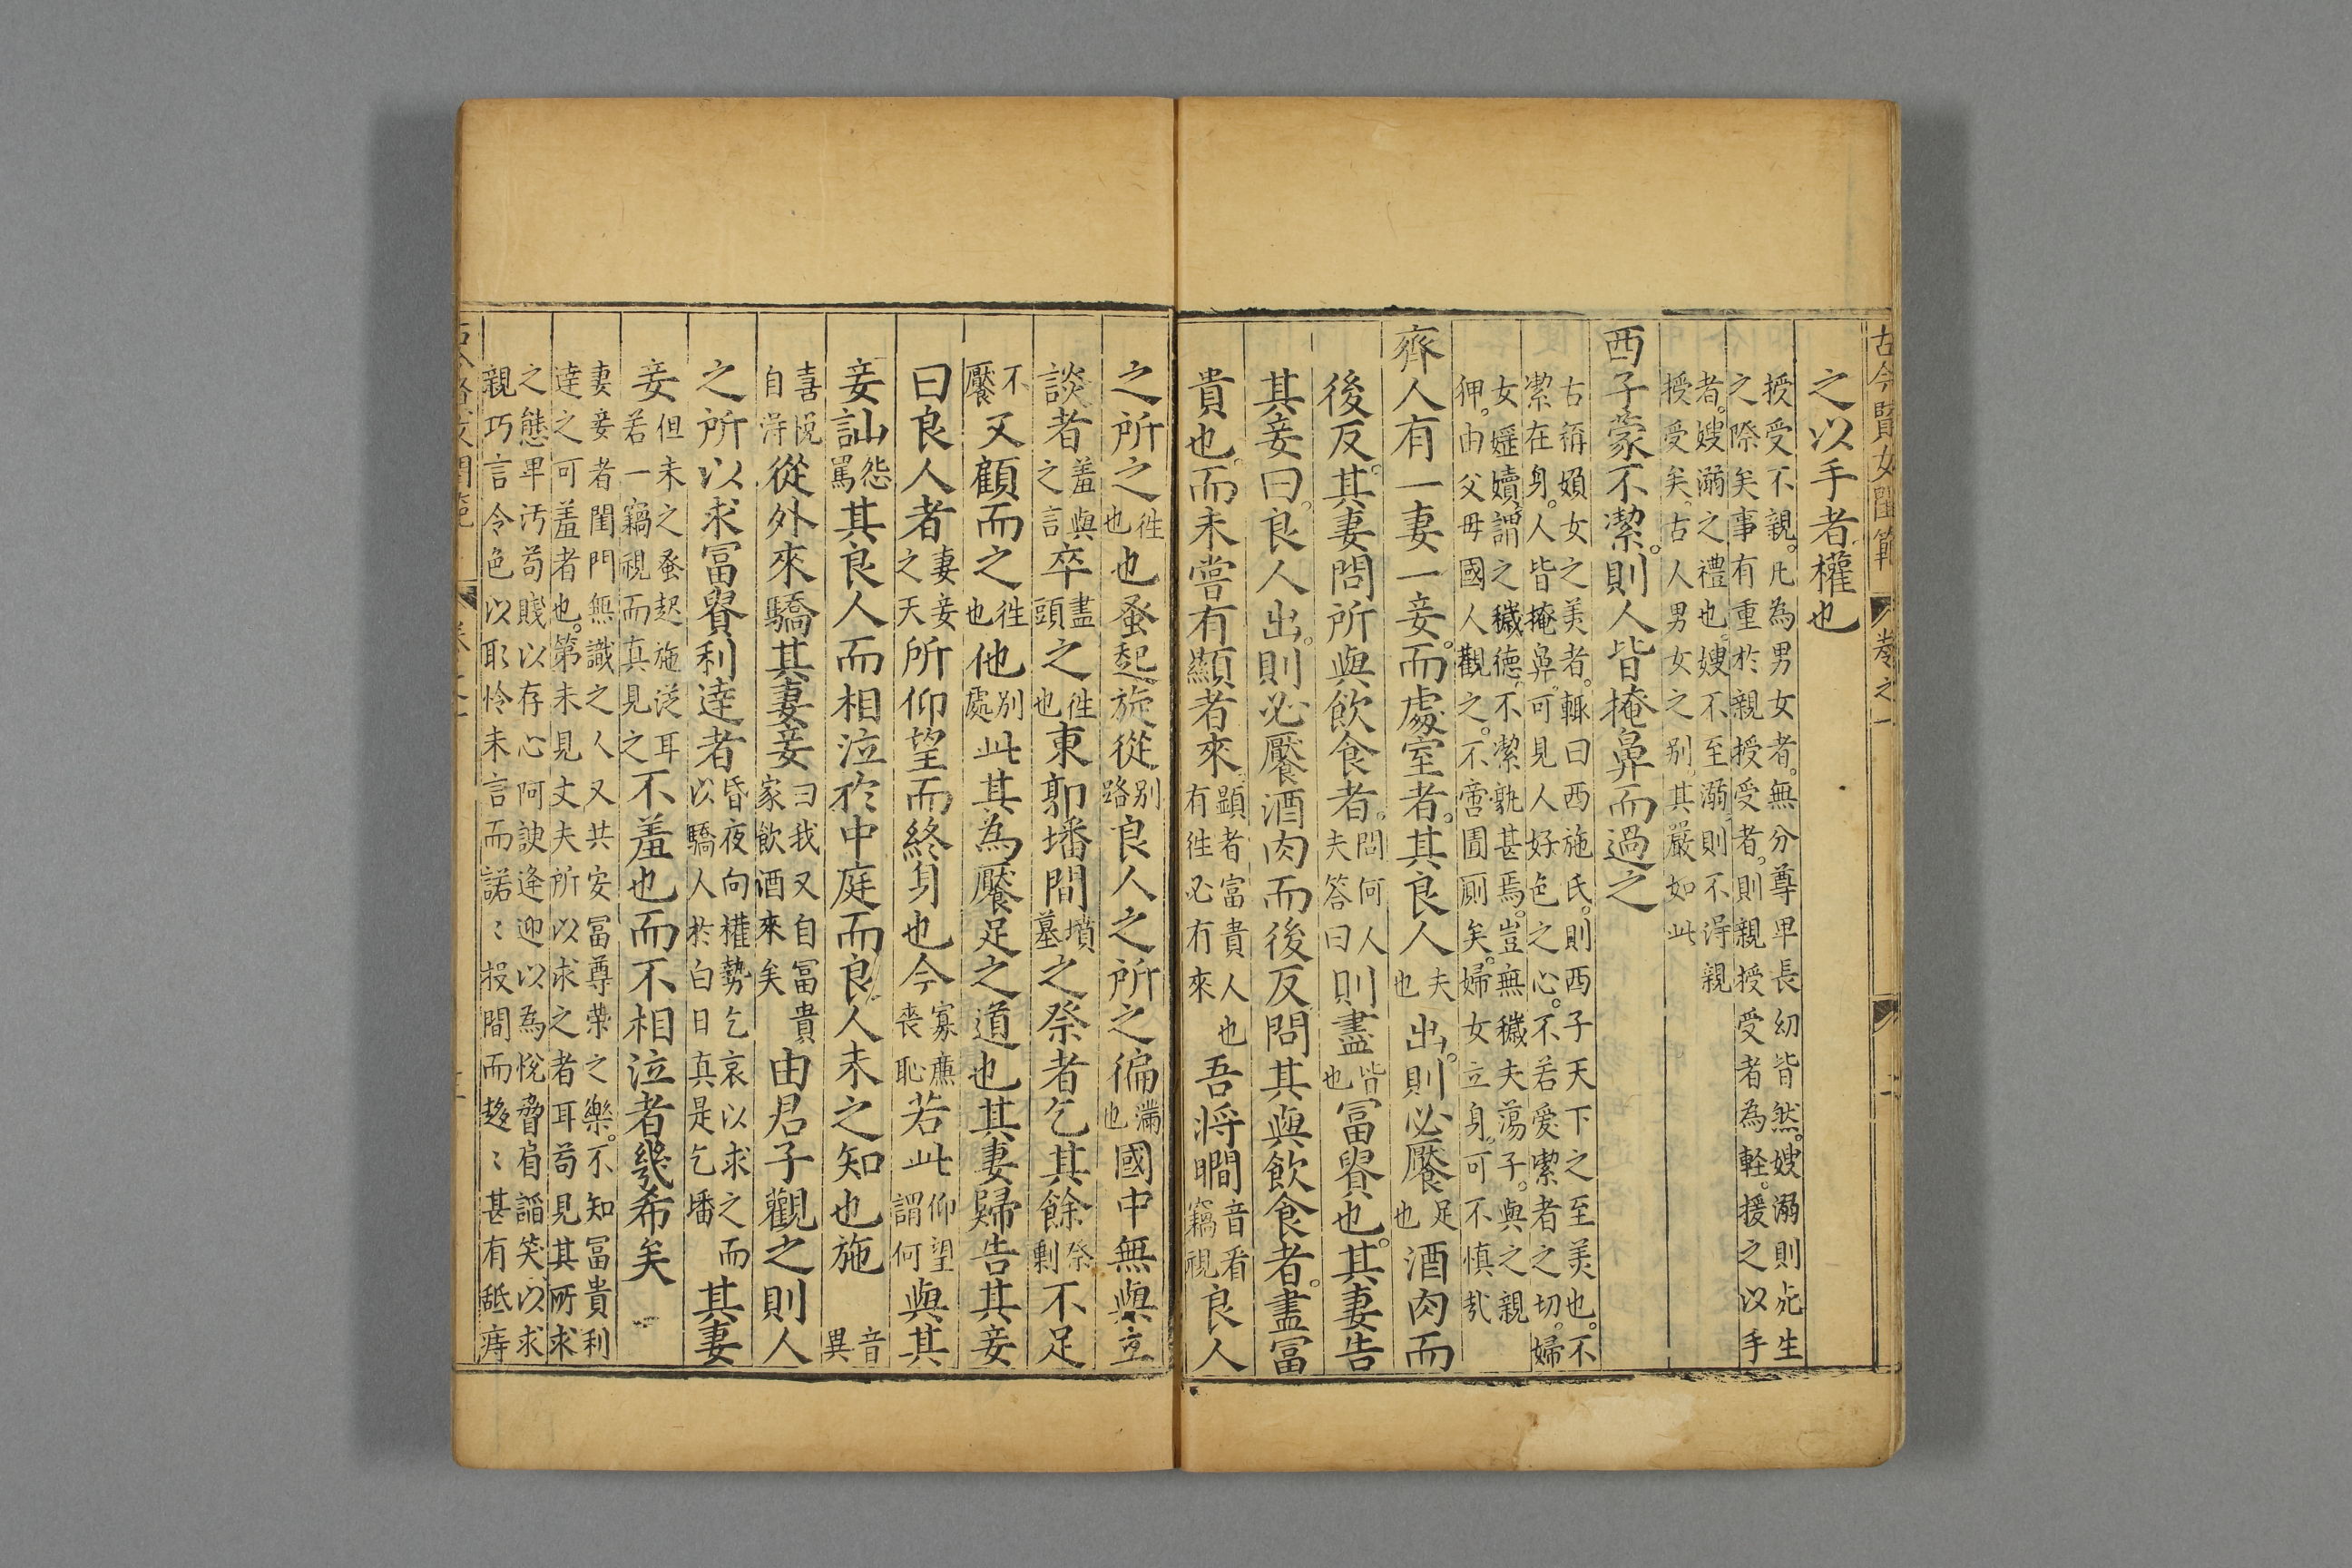 古今賢女閨範 卷之一
之以手者權也
授受不親。凡為男女者。無分尊卑長幼皆然。嫂溺則死生
之際矣事有重於親授受者。則親授受者為輕。援之以手
者。嫂溺之禮也嫂不至溺則不得親
授受矣。古人男女之别。其嚴如此
西子蒙不潔。則人皆掩鼻而過之
古稱媍女之美者。輙曰西施氏。則西子天下之至美也。不
潔在身。人皆掩鼻。可見人好色之心。不若愛潔者之切。婦
女婬嬻。謂之穢德。不潔孰甚焉。豈無穢夫蕩子。與之親
狎。由父母國人觀之。不啻圊厠矣。婦女立身。可不慎哉
齊人有一妻一妾。而處室者。其良人夫也出。則必饜足也酒肉而
後反。其妻問所與飲食者。問何人夫答曰則盡皆也冨貴也。其妻告
其妾曰。良人出。則必饜酒肉而後反問其與飲食者。盡冨
貴也。而未嘗有顯者來。顕者富貴人也有徃必有來吾將瞯音看竊視良人
之所之徃也也蚤起施從别路良人之所之徧滿也國中無與立
談者羞與之言卒盡頭之徃也東郭墦間墳墓之祭者乞其餘祭剩不足
不饜又顧而之徃也他别處此其為饜足之道也其妻歸告其妾
曰良人者妻妾之天所仰望而終身也今寡亷喪恥若此仰望謂何與其
妾訕怨罵其良人而相泣於中庭而良人未之知也施音異
喜悦自得從外來驕其妻妾曰我又自冨貴家飲酒來矣由君子觀之則人
之所以求冨貴利達者昏夜向權勢乞哀以求之而以驕人於白日真是乞墦其妻
妾但未之蚤起施從耳若一竊視而真見之不羞也而不相泣者幾希矣
妻妾者閨門無識之人又共安冨尊榮之樂。不知冨貴利
達之可羞者也。第未見丈夫所以求之者耳苟見其所求
之態卑汚苟賤以存心阿諛逢迎以為悅脅肩謟笑以求
親巧言令色以取怜未言而諾〻投間而趍〻甚有舐痔